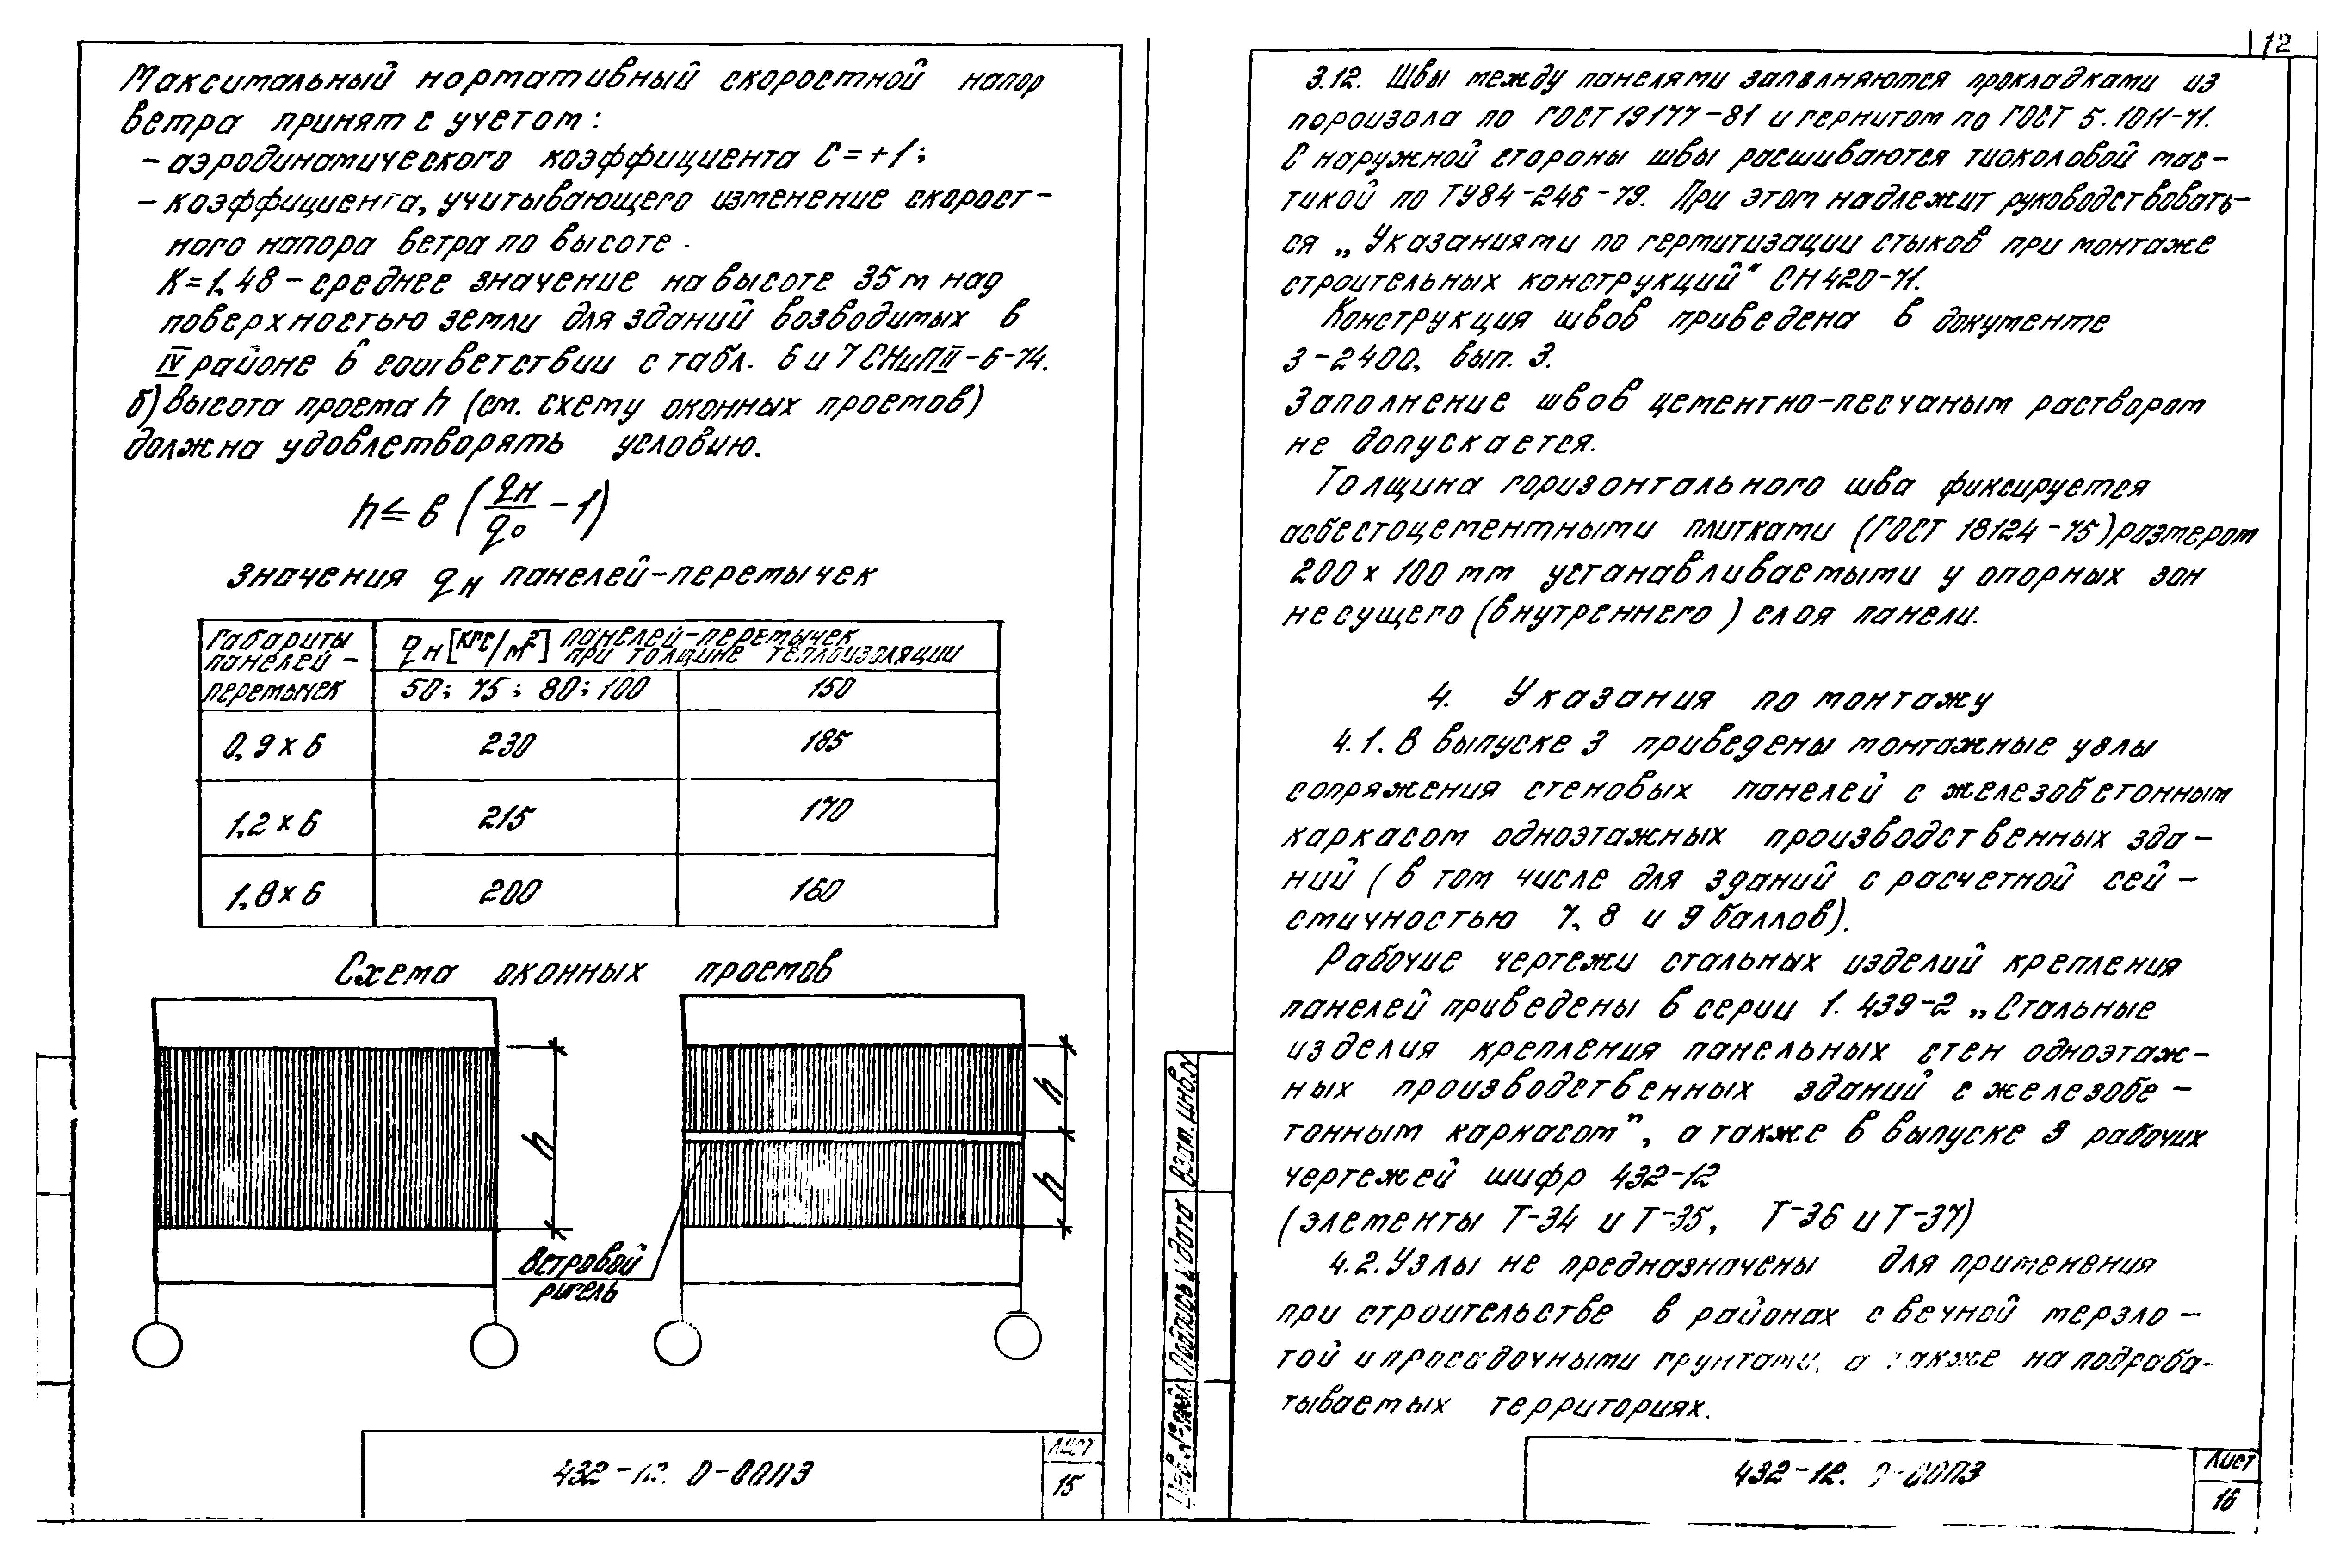 Максимальный нормативный скоростной напор
ветра принят с учетом:
- аэродинамического коэффициента С=+1;
- коэффициента, учитывающего изменение скорост-
ного напора ветра по высоте.
К=1,48 - среднее значение на высоте 35 м над
поверхностью земли для зданий возводимых в
IV районе в соответствии с табл. 6 и 7 СНиП II-6-74.
б) Высота проема h (см. схему оконных проемов)
должна удовлетворять условию.
h ≤ в (qн/q₀ - 1)
Значения qн панелей-перемычек
Габариты
панелей-
перемычек
qн [кгс/м²] панелей-перемычек
при толщине теплоизоляции
50; 75; 80; 100 150
0,9 x 6 230 185
1,2 x 6 215 170
1,8 x 6 200 160
Схема оконных проемов
h
h
h
Ветровой
ригель
432-12. 0-00ПЗ
Лист
15
12
3.12. Швы между панелями заполняются прокладками из
пороизола по ГОСТ 19177-81 и гернитом по ГОСТ 5.1011-71.
С наружной стороны швы расшиваются тиоколовой мас-
тикой по ТУ84-246-79. При этом надлежит руководствовать-
ся „Указаниями по гермитизации стыков при монтаже
строительных конструкций" СН 420-71.
Конструкция швов приведена в документе
3-2400, вып. 3.
Заполнение швов цементно-песчаным раствором
не допускается.
Толщина горизонтального шва фиксируется
асбестоцементными плитками (ГОСТ 18124-75) размером
200 x 100 мм устанавливаемыми у опорных зон
несущего (внутреннего) слоя панели.
4. Указания по монтажу
4.1. В выпуске 3 приведены монтажные узлы
сопряжения стеновых панелей с железобетонным
каркасом одноэтажных производственных зда-
ний (в том числе для зданий с расчетной сей-
смичностью 7, 8 и 9 баллов).
Рабочие чертежи стальных изделий крепления
панелей приведены в серии 1.439-2 „Стальные
изделия крепления панельных стен одноэтаж-
ных производственных зданий с железобе-
тонным каркасом", а также в выпуске 3 рабочих
чертежей шифр 432-12
(элементы Т-34 и Т-35, Т-36 и Т-37)
4.2. Узлы не предназначены для применения
при строительстве в районах с вечной мерзло-
той и просадочными грунтами, а также на подраба-
тываемых территориях.
Взам. инв. N
Подпись и дата
Инв. N подл.
432-12. 0-00ПЗ
Лист
16